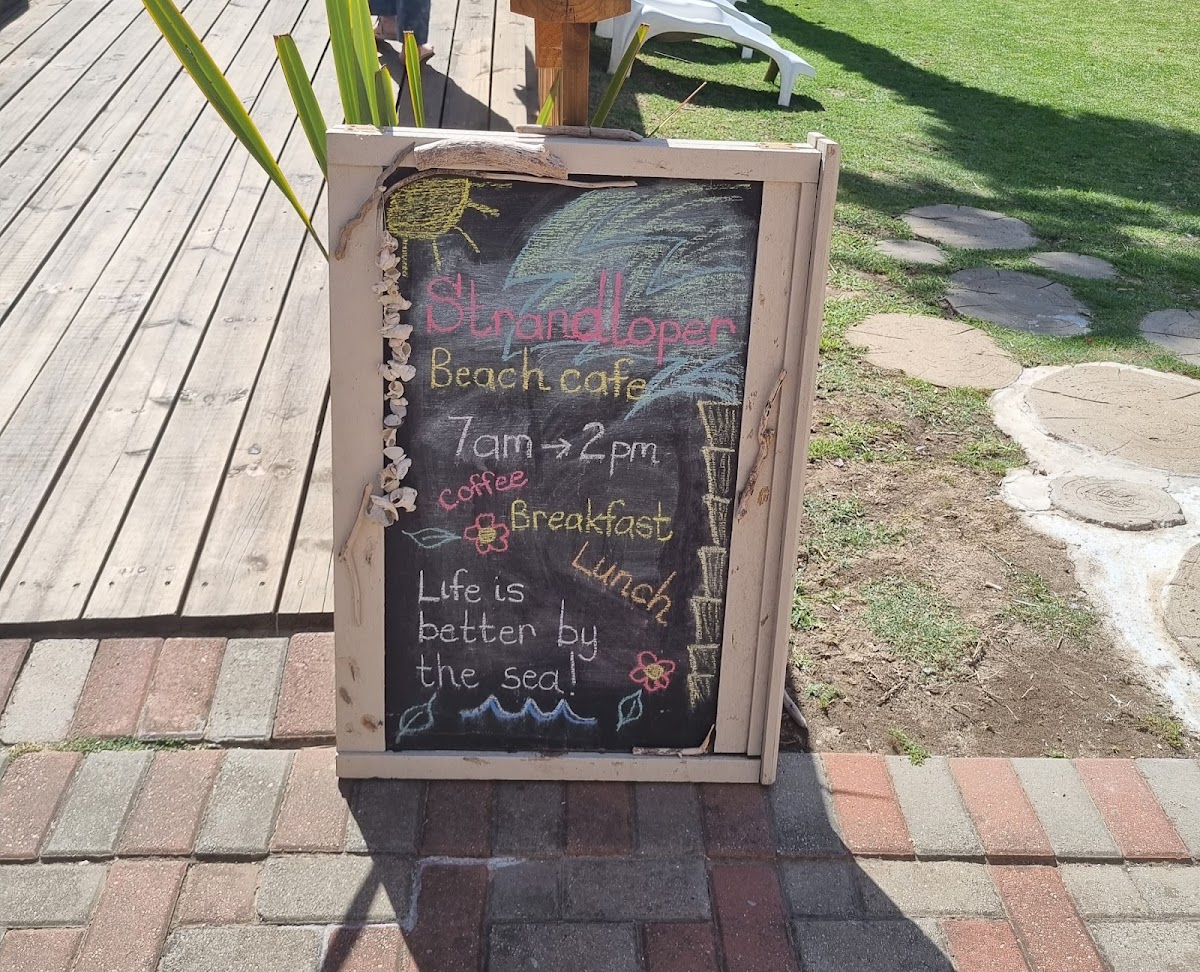 Strandloper
Beach cafe
7am → 2pm
coffee
Breakfast
Lunch
Life is
better by
the sea!